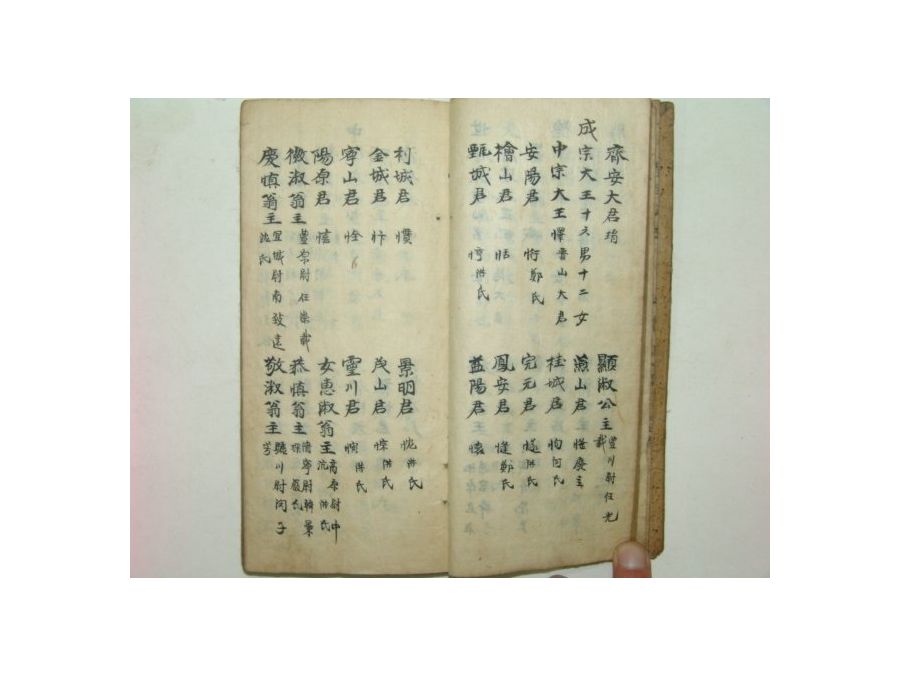 齊安大君琄 顯淑公主豊川尉任光載
成宗大王十六男十二女 燕山君㦕廢主
中宗大王懌晋山大君 桂城君恂何氏
安陽君㤚鄭氏 完元君㥞洪氏
檜山君恬 鳳安君㦀鄭氏
甄城君惇洪氏 益陽君懷
利城君慣 景明君忱洪氏
金城君忭 茂山君悰洪氏
寧山君恮 靈川君
陽原君憘 女惠淑翁主高原尉申沆洪氏
徽淑翁主豊原尉任崇載 恭愼翁主淸寧尉韓景琛嚴氏
慶愼翁主宜城尉南致遠沈氏 敬淑翁主驪川尉閔子芳